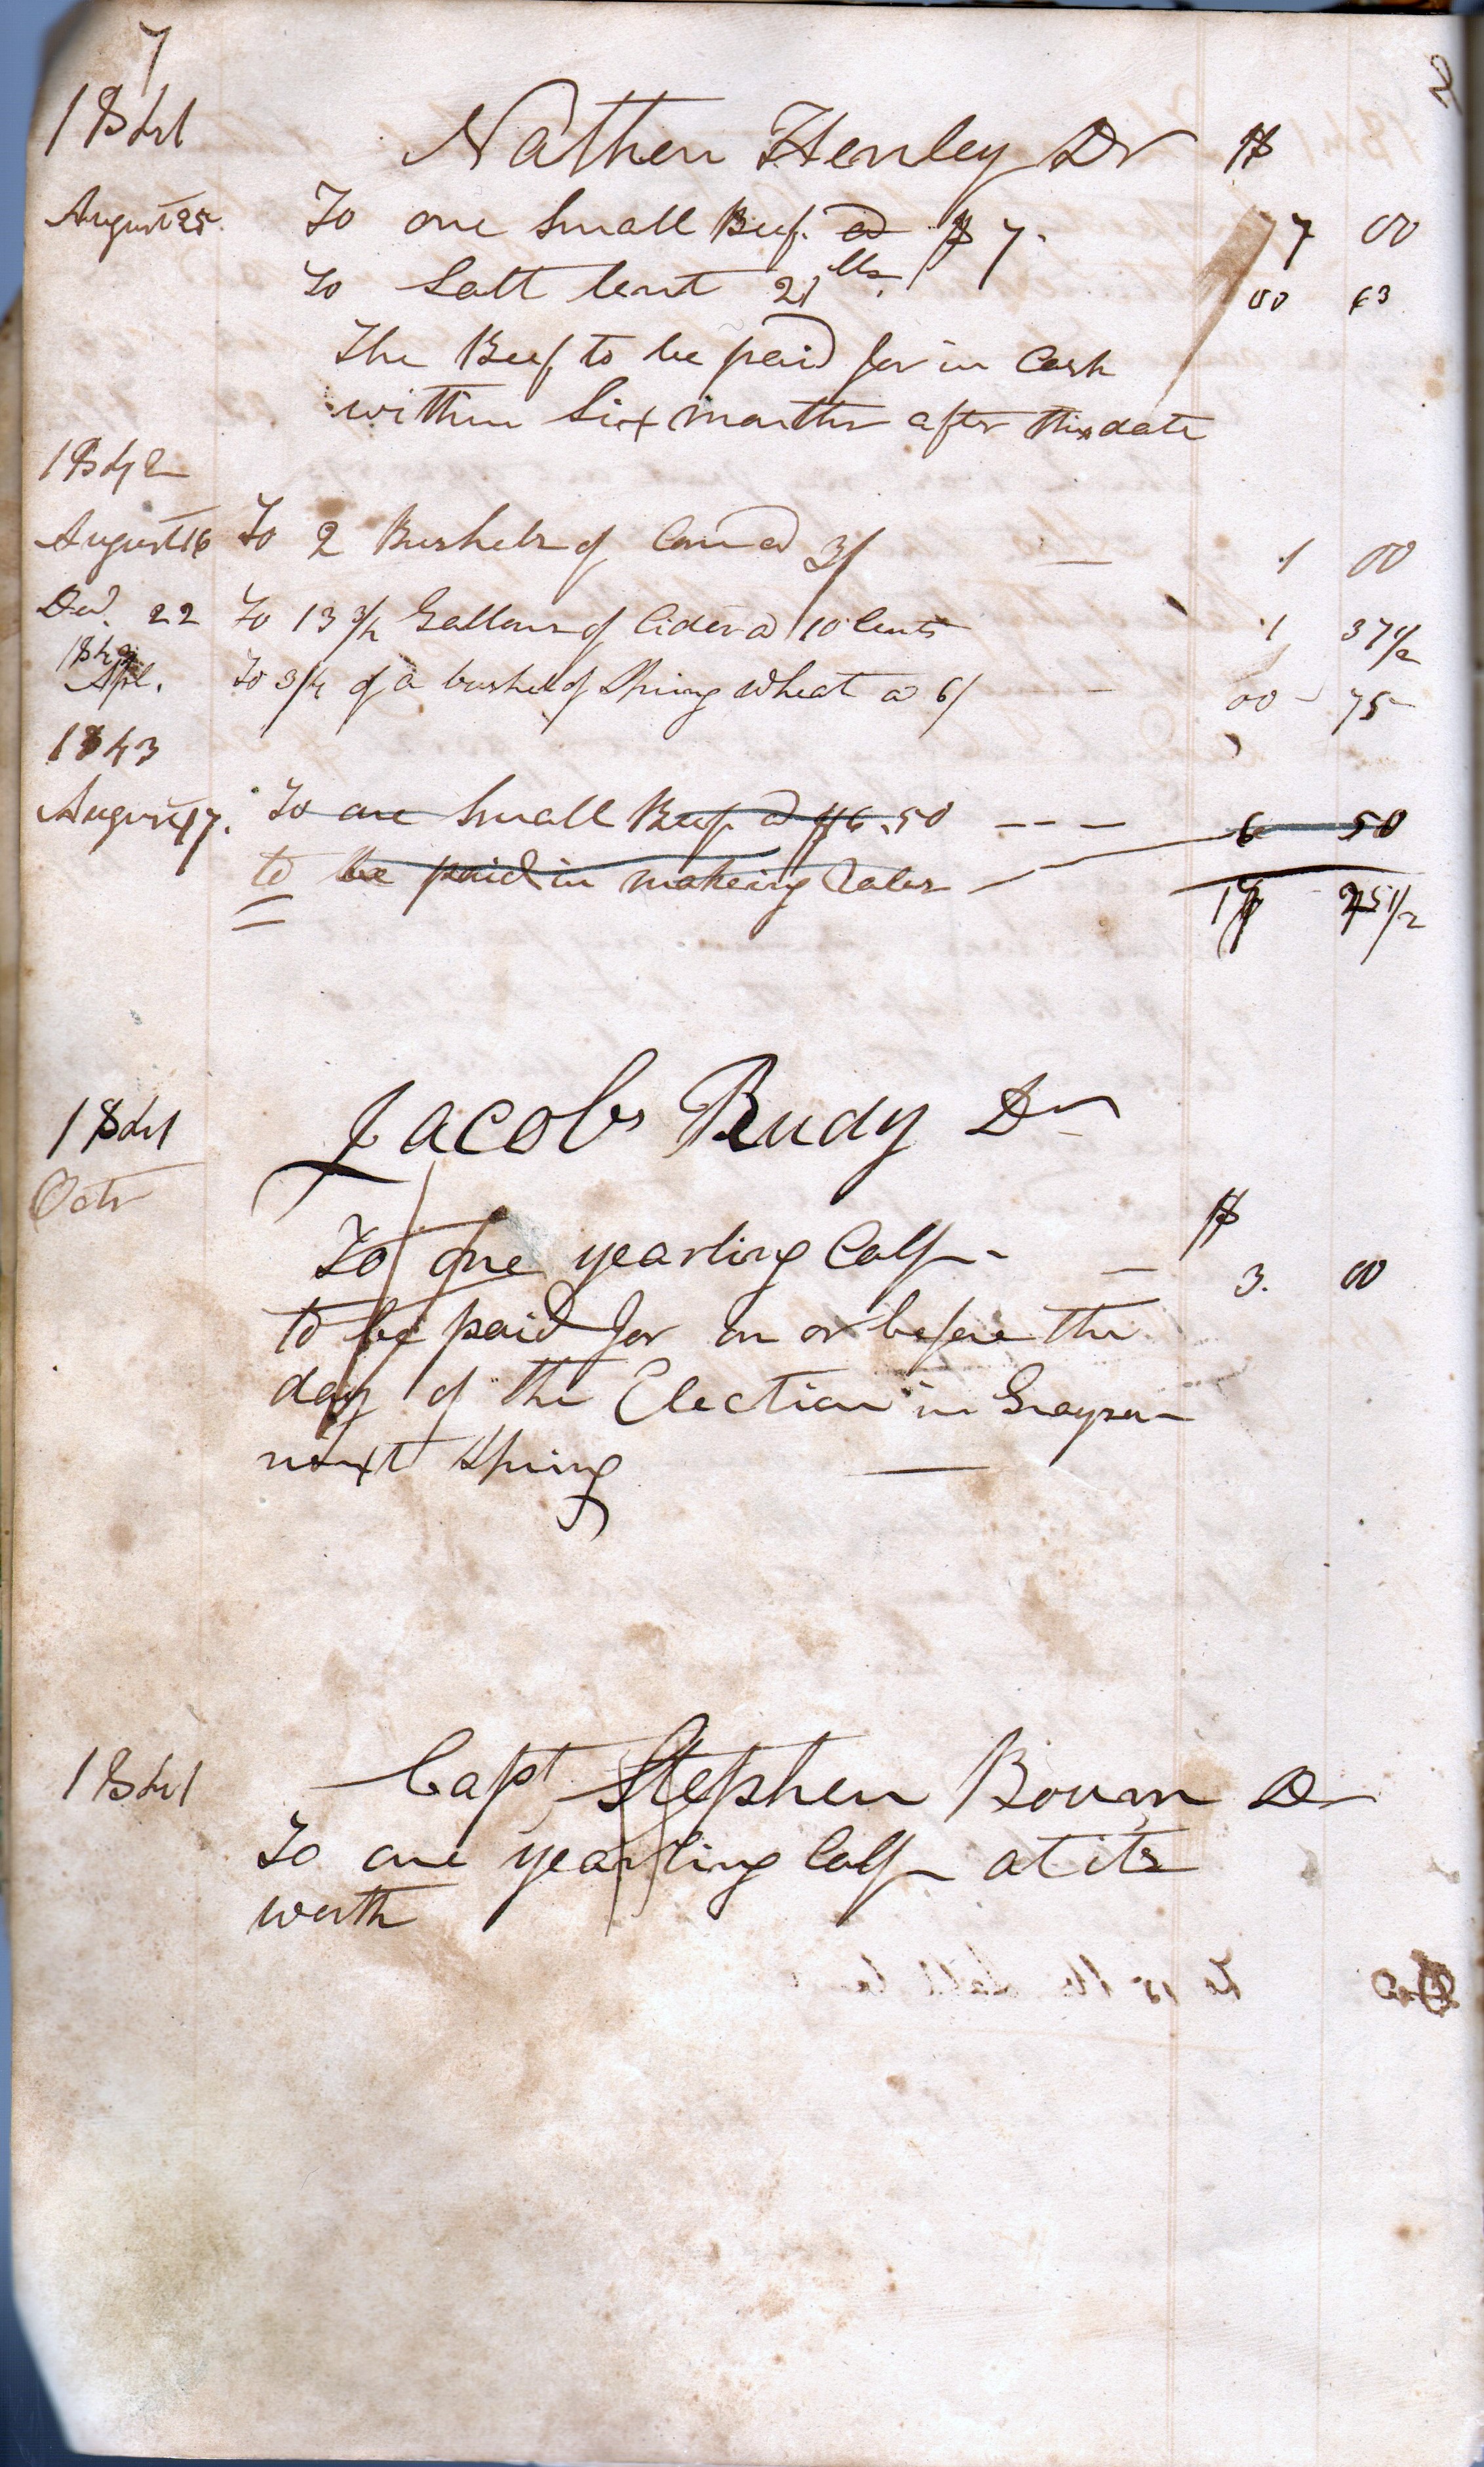 7
1841 Nathen Henley Dr $
August 25. To one Small Beef @ $7. 7 00
To Salt lent 21 lbs. 00 63
The Beef to be paid for in Cash
within Six months after this date
1842
August 16 To 2 Bushels of Corn @ 3/ — 1 00
Dec. 22 To 13 3/4 Gallons of Cider @ 10 Cents 1 37 1/2
1843
Apl. To 3/4 of a bushel of Spring Wheat @ 6/ — 00 - 75
1843
August 17. To one Small Beef @ $6.50 - - - 6 50
to be paid in makeing Rales — 25 1/2
1841 Jacob Rudy Dr
Octr $
To one yearling Calf - — 3. 00
to be paid for on or before the
day of the Election in Grayson
next Spring —
1841 Capt Stephen Bourn Dr
To one yearling Calf at its
worth